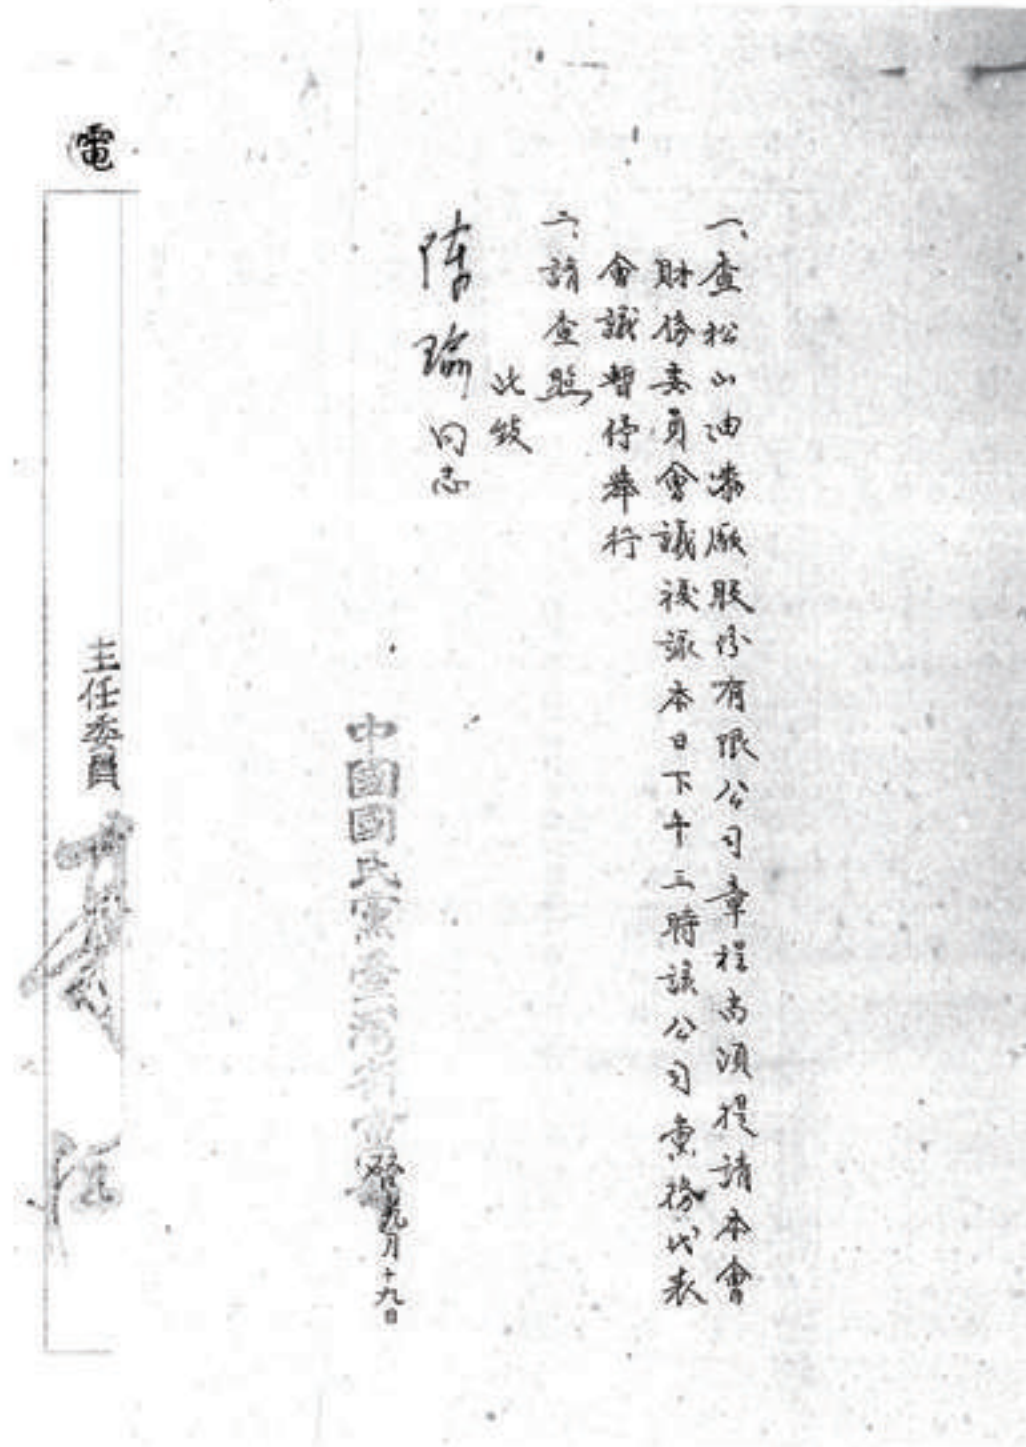 一、查松山油漆廠股份有限公司章程尚須提請本會
財務委員會議複議本日下午三時該公司黨務代表
會議暫停舉行
二、請查照
此致
陳瑜同志
中國國民黨臺灣省黨部 啓 九月十九日
主任委員
電